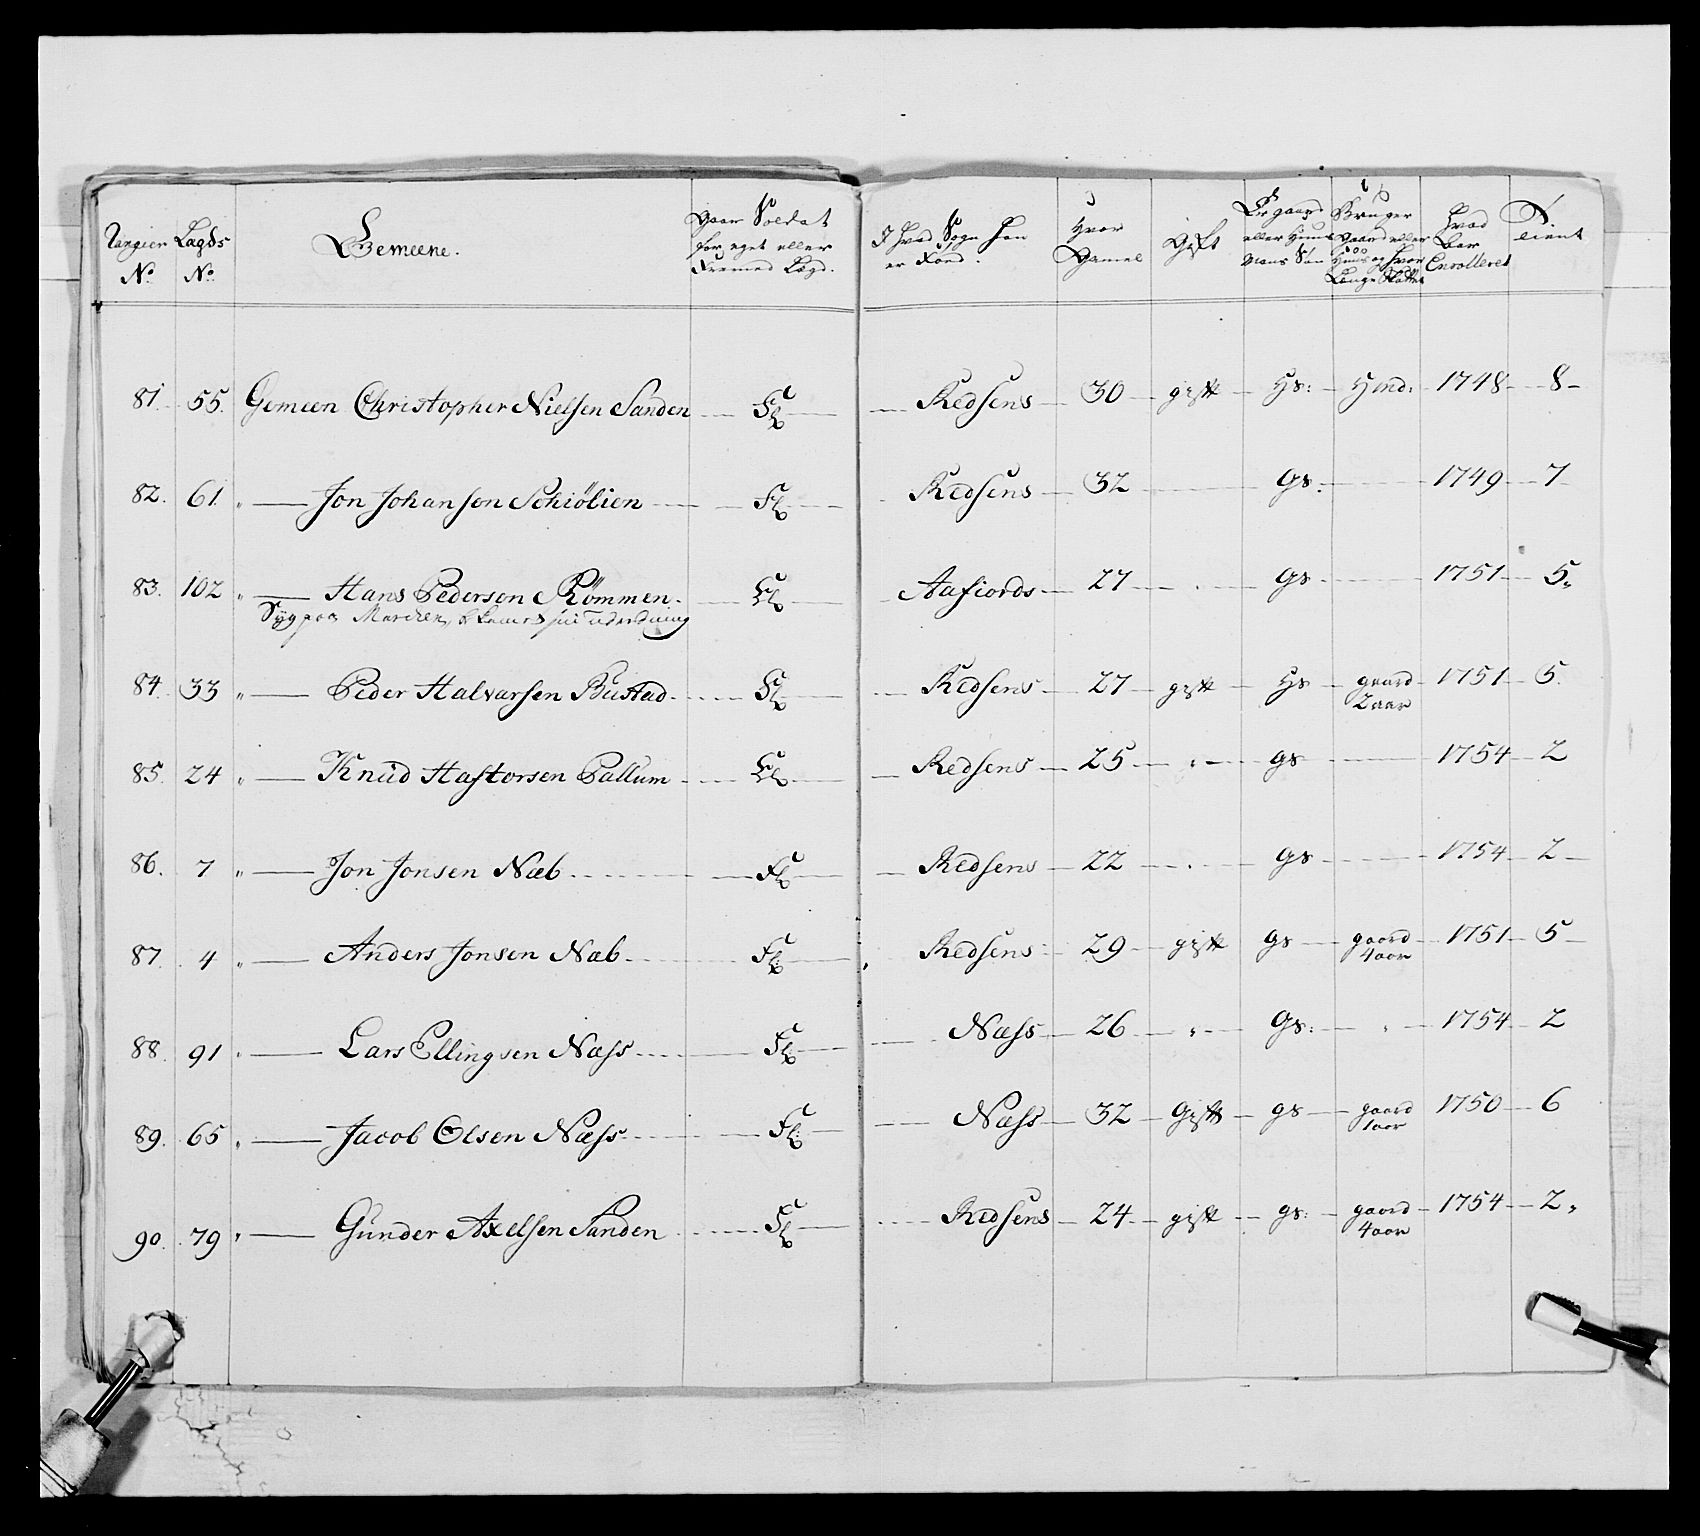 Rangier No | Lagds No | Gemeene. | Gaar Soldat for eget eller Fremed Lægd. | I hvad Sogn han er Fød. | Hvor Gamel | Gift | Er gaard eller Huus Mans Søn | Bruger Gaard eller Huus og hvor Længe | hvad Aar Enrolleret | Tient
81. 55. Gemeen Christopher Nielsen Sanden Fl Redsens 30 gift Hs: Hmd: 1748 8
82. 61. " Jon Johanson Schiölien Fl Redsens 32 gs. 1749 7
83. 102 " Hans Pederson Römmen. El Aafiords 27 gs 1751 5
Syg paa Marchen,
84. 33 " Peder Halvarsen Bustad Fl Redsens 27 gift Hs gaard 2 aar 1751 5
85. 24 " Knud Haftorsen Pallum El Redsens 25 " gs 1754 2
86. 7 " Jon Jonsen Næb Fl Redsens 22 gs 1754 2
87. 4 " Anders Jonsen Næb Fl: Redsens 29 gift gs gaard 4 aar 1751 5
88. 91 " Lars Ellingsen Næss Fl Næss 26 " Gs: " 1754 2
89. 65 " Jacob Olsen Næss Fl: Næss 32 Gift gs gaard 1 aar 1750 6
90. 79 " Gunder Axelsen Sanden Fl Redsens 24 gift gs: gaard 4 aar 1754 2